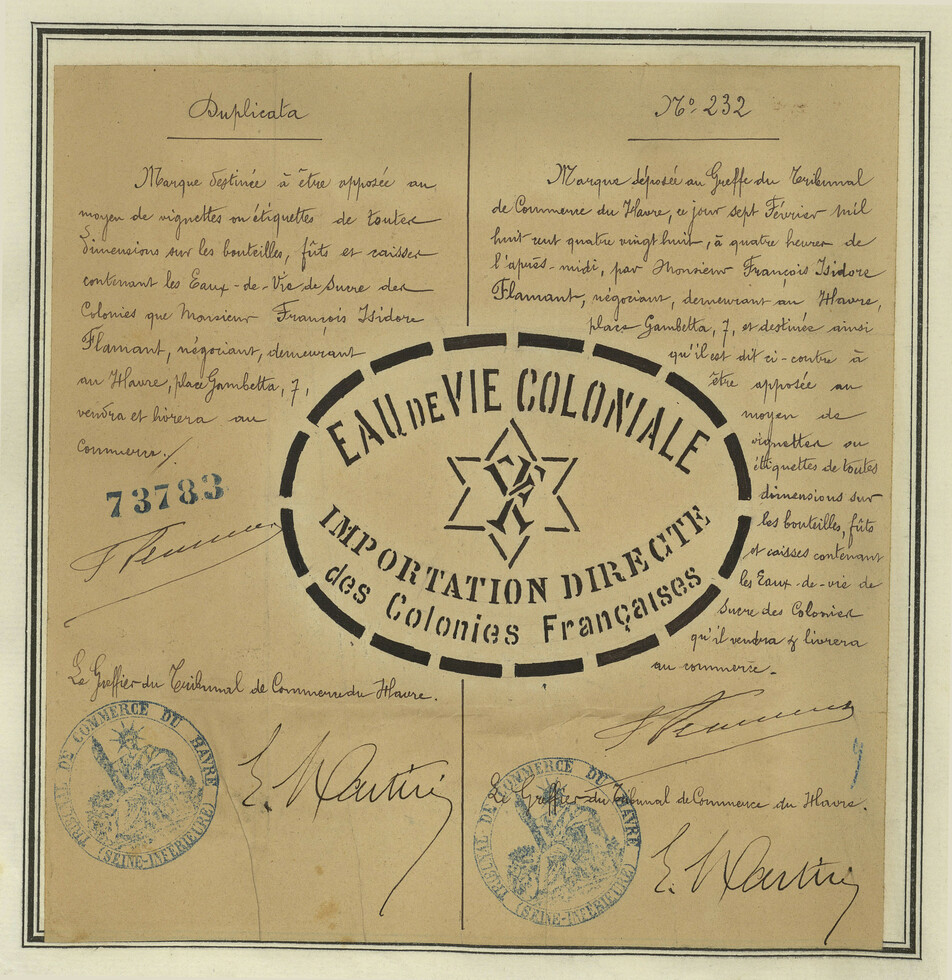 Duplicata
Marque destinée à être apposée au
moyen de vignettes ou étiquettes de toutes
dimensions sur les bouteilles, fûts et caisses
contenant les Eaux-de-Vie de Sucre des
Colonies que Monsieur François Isidore
Flamant, négociant, demeurant
au Havre, place Gambetta, 7,
vendra et livrera au
commerce.
73783
Le Greffier du Tribunal de Commerce du Havre.
TRIBUNAL DE COMMERCE DU HAVRE
(SEINE-INFÉRIEURE)
E. Martin
N° 232
Marque déposée au Greffe du Tribunal
de Commerce du Havre, ce jour sept Février mil
huit cent quatre vingt huit, à quatre heures de
l'après-midi, par Monsieur François Isidore
Flamant, négociant, demeurant au Havre,
place Gambetta, 7, et destinée ainsi
qu'il est dit ci-contre à
être apposée au
moyen de
vignettes ou
étiquettes de toutes
dimensions sur
les bouteilles, fûts
et caisses contenant
les Eaux-de-vie de
Sucre des Colonies
qu'il vendra & livrera
au commerce.
Le Greffier du Tribunal de Commerce du Havre.
TRIBUNAL DE COMMERCE DU HAVRE
(SEINE-INFÉRIEURE)
E. Martin
EAU DE VIE COLONIALE
IMPORTATION DIRECTE
des Colonies Françaises